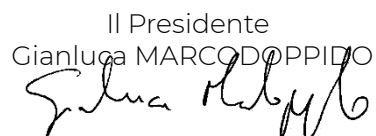 Il Presidente
Gianluca MARCODOPPIDO